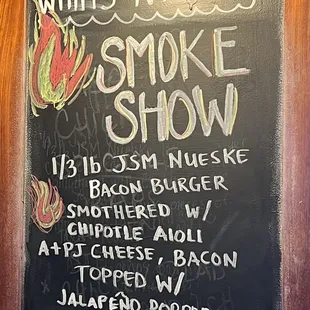 SMOKE
SHOW
1/3 lb JSM NUESKE
BACON BURGER
SMOTHERED W/
CHIPOTLE AIOLI
A+PJ CHEESE, BACON
TOPPED W/
JALAPEÑO POPPER